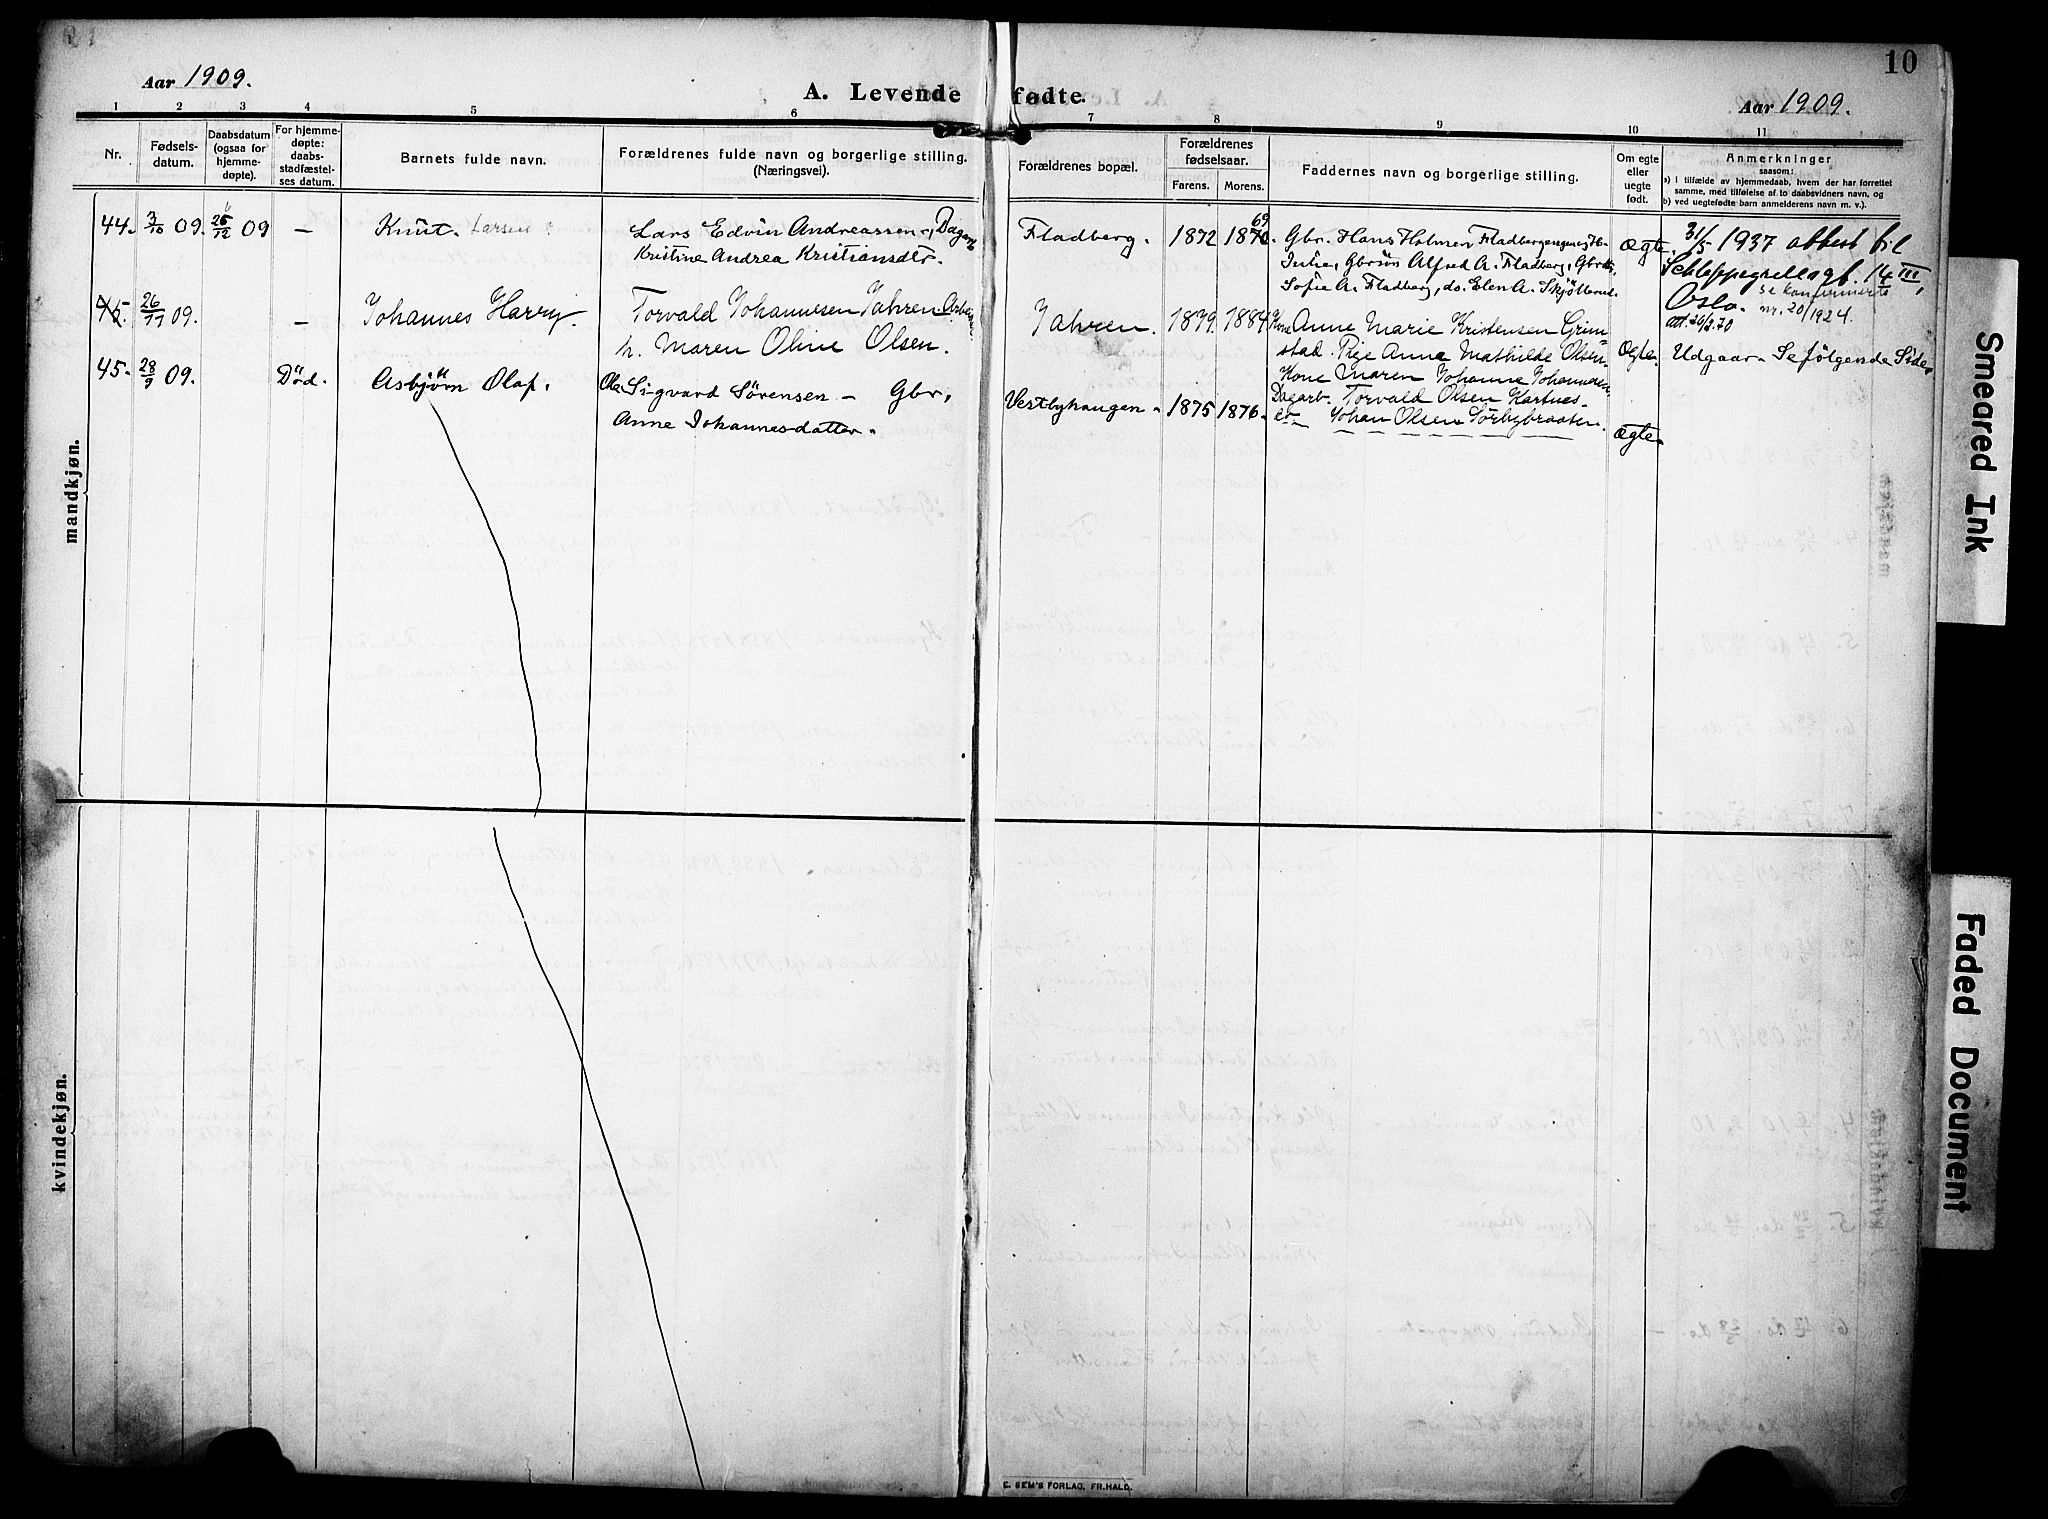 10
Aar 1909.
A. Levende fødte.
Aar 1909.
1 2 3 4 5 6 7 8 9 10 11
Nr.
Fødsels-
datum.
Daabsdatum
(ogsaa for
hjemme-
døpte).
For hjemme-
døpte:
daabs-
stadfæstel-
ses datum.
Barnets fulde navn.
Forældrenes fulde navn og borgerlige stilling.
(Næringsvei).
Forældrenes bopæl.
Forældrenes
fødselsaar.
Farens. Morens.
Faddernes navn og borgerlige stilling.
Om egte
eller
uegte
født.
Anmerkninger
saasom:
a) i tilfælde av hjemmedaab, hvem der har forrettet
samme, med tilføielse af to daabsvidners navn, og
b) ved uegtefødte barn anmelderens navn m. v.).
mandkjøn.
44. 3/10 09. 26/12 09 – Knut. Larsen
Lars Edvin Andreassen, Dagarb.
Kristine Andrea Kristiansdtr.
Fladberg. 1872 1870 69
Gbr. Hans Holmen Fladbergengen, H.
Julie, Gbrsøn Alfred A. Fladberg, Gbrdtr.
Sofie A. Fladberg, do. Elen A. Skjøtterud.
Ægte.
31/5 1937 attest til
Schleppegrellsgt. 14 III,
Oslo. se konfirmerte
nr. 20/1924.
att. 26/2.70
45. 26/11 09. – Johannes Harry.
Torvald Johannesen Jahren. Arbeider
h. Maren Oline Olsen.
Jahren. 1879. 1884.
Kone Anne Marie Kristensen Grim-
stad. Pige Anne Mathilde Olsen.
Kone Maren Johanne Johannesen,
Dagarb. Torvald Olsen Kartnes.
do – Johan Olsen Sørbybraaten.
Ægte. Udgaar – Se følgende Side.
45. 28/9 09. Död. Asbjörn Olaf.
Ole Sigvard Sørensen – Gbr,
Anne Johannesdatter.
Vestbyhaugen. 1875 1876.
Ægte.
kvindekjøn.
E. SEM'S FORLAG, FR.HALD.
Smeared Ink
Faded Document